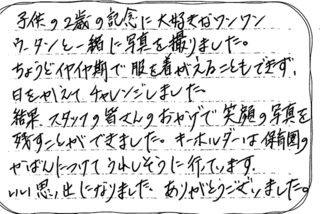 子供の2歳の記念に大好きなワンワン
ウータンと一緒に写真を撮りました。
ちょうどイヤイヤ期で服を着がえることもできず、
日をかえてチャレンジしました。
結果スタッフの皆さんのおかげで笑顔の写真を
残すことができました。キーホルダーは保育園の
かばんにつけてうれしそうに行っています。
いい思い出になりました。ありがとうございました。